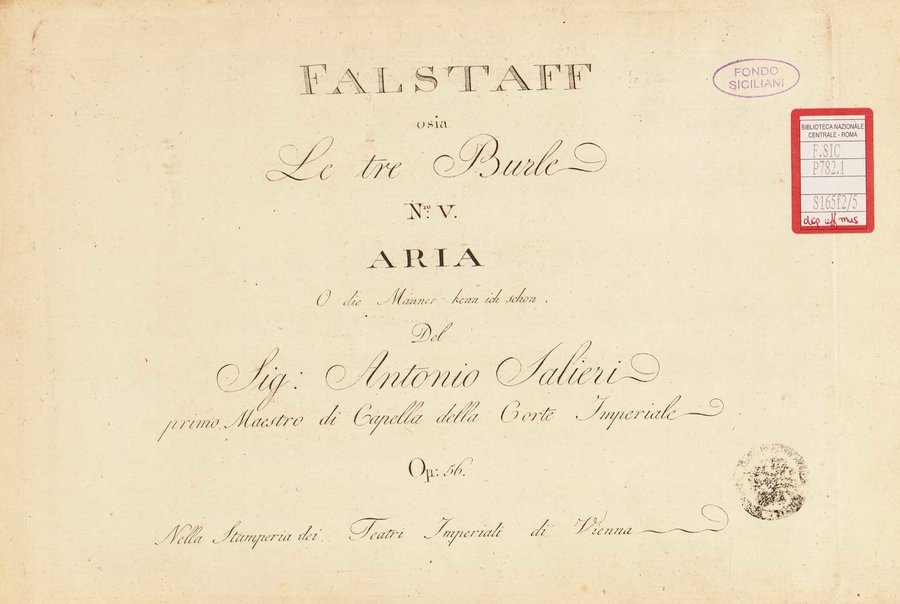 FALSTAFF
osia
Le tre Burle
Nro. V.
ARIA
O die Männer kenn ich schon.
Del
Sig: Antonio Salieri
primo Maestro di Capella della Corte Imperiale
Op: 56.
Nella Stamperia dei Teatri Imperiali di Vienna
FONDO
SICILIANI
BIBLIOTECA NAZIONALE
CENTRALE - ROMA
F.SIC
P782.1
S165f2/5
dep uff mus